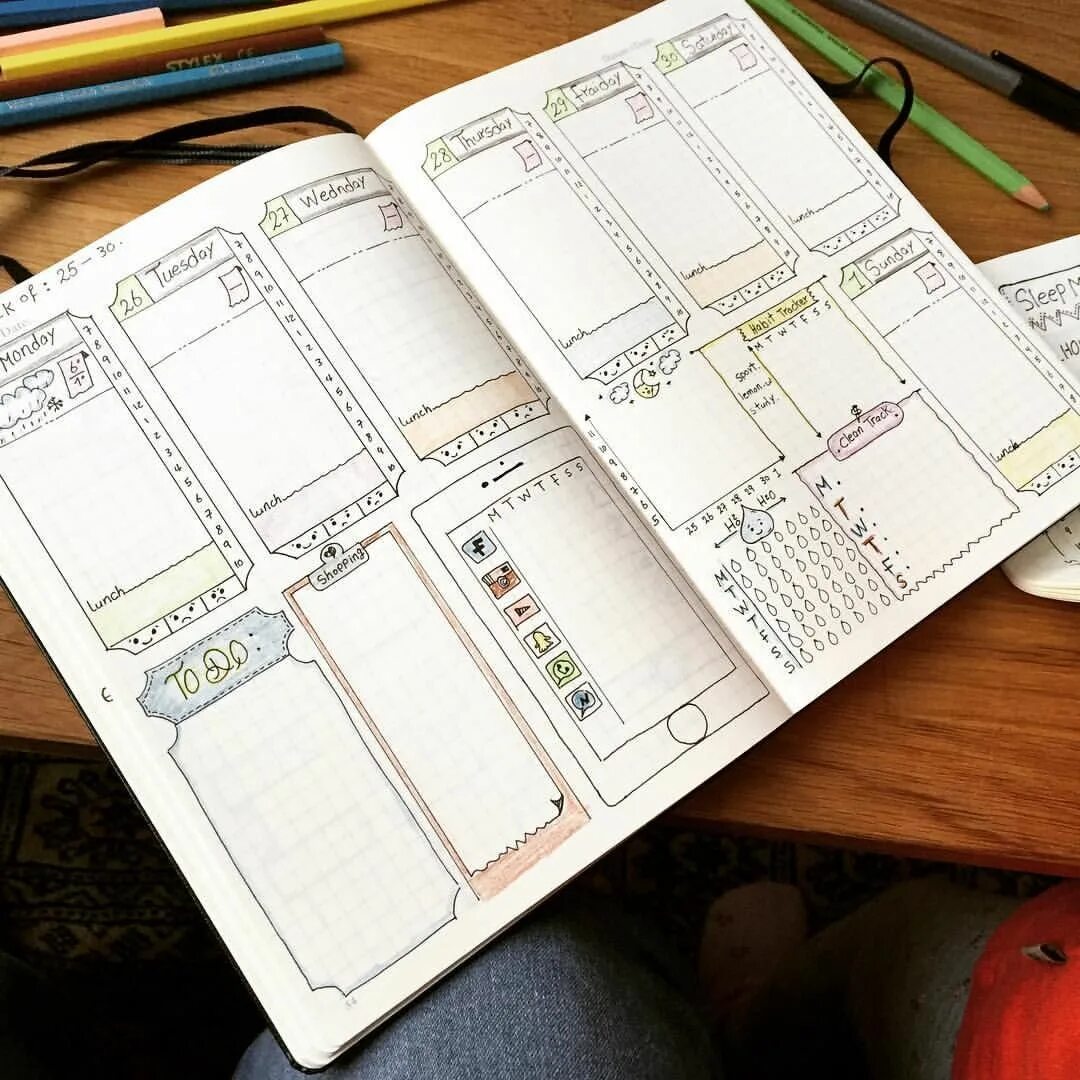 STYLEX CE
CK OF: 25-30.
Monday
6°
7 8 9 10 11 12 1 2 3 4 5 6 7 8 9 10
lunch
26 Tuesday
7 8 9 10 11 12 1 2 3 4 5 6 7 8 9 10
lunch
27 Wednday
lunch
TO DO:
Shopping
M T W T F S S
28 Thursday
lunch
29 Fraiday
lunch
30 Saturday
lunch
1 Sunday
lunch
Habit Tracker
M T W T F S S
sport.
study.
11 10 9 8 7 6 5
25 26 27 28 29 30 1
Clean Track
M.
T.
W.
T.
F.
S
H2O
M T W T F S S
Sleep M
HO